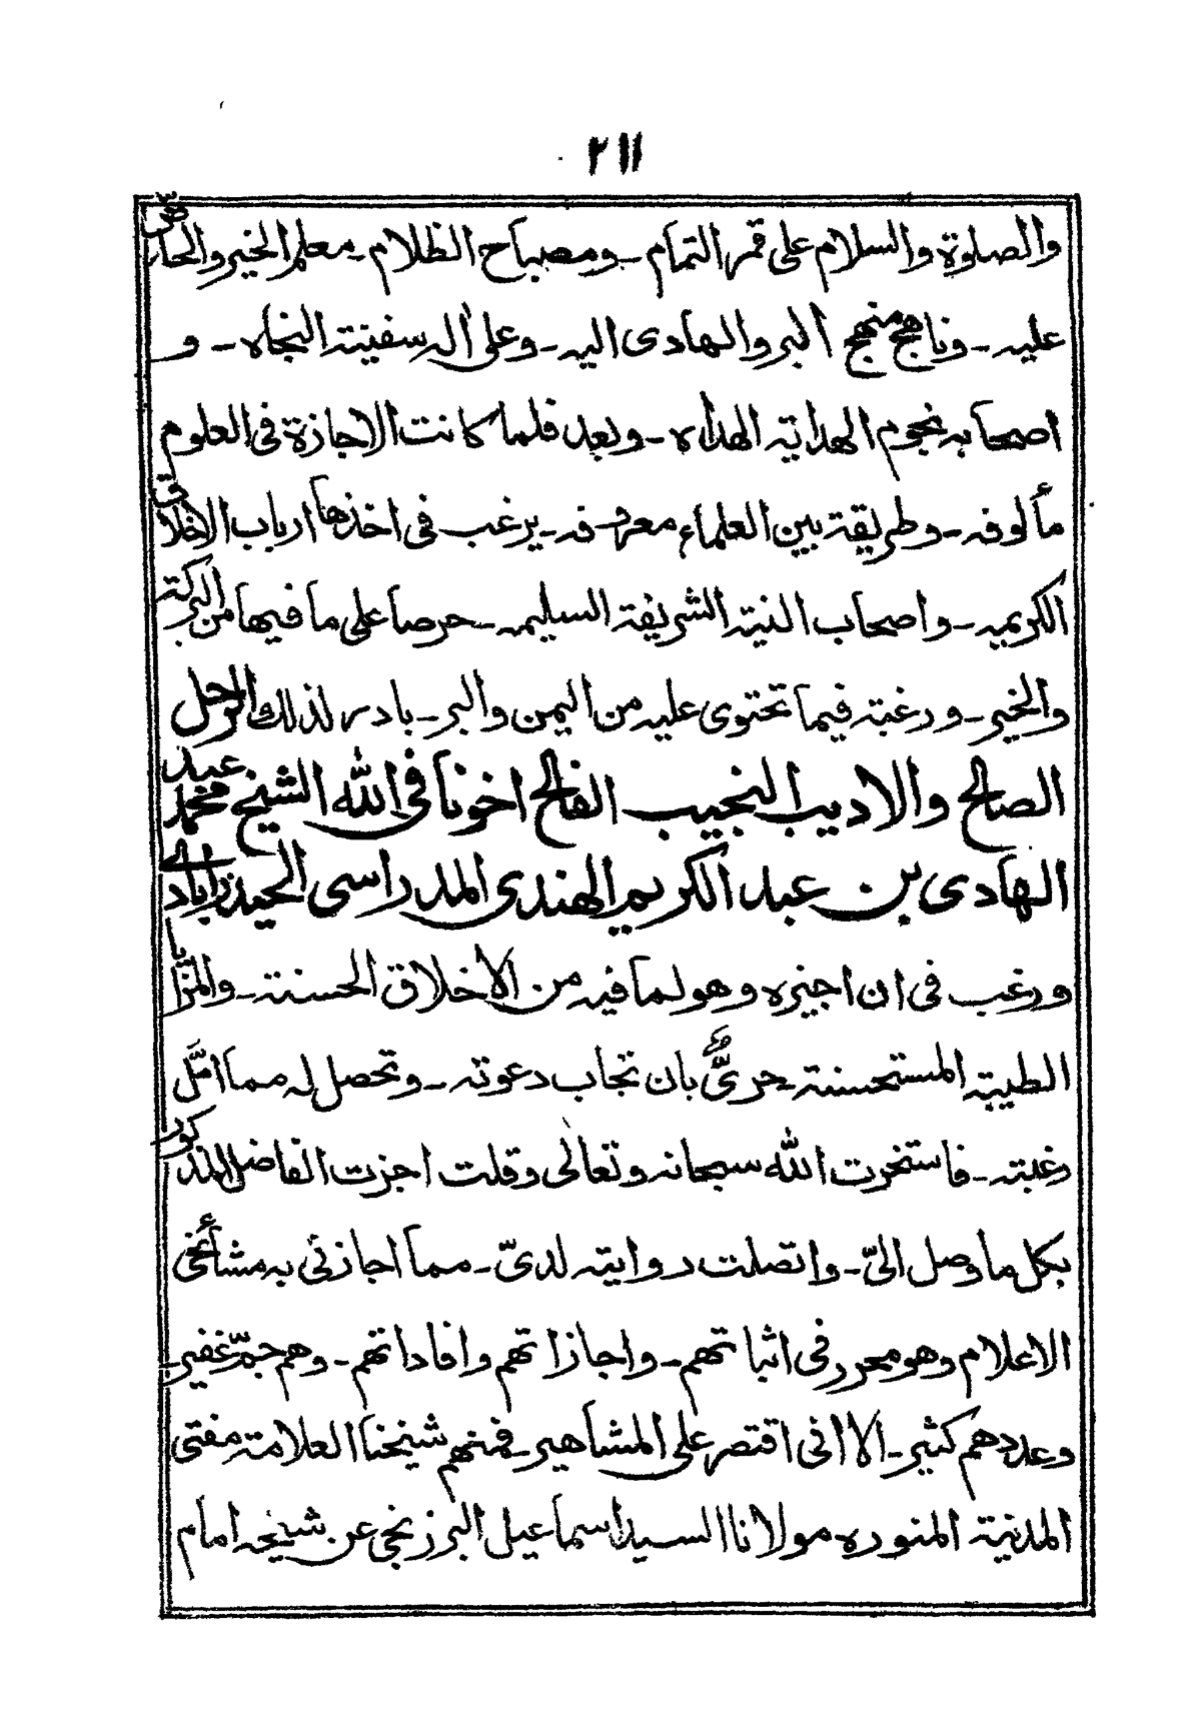 ٢١١
والصلوة والسلام على قمر التمام ـ ومصباح الظلام ـ معلم الخير والحاض
عليه ـ وناهج منهج البر والهادى اليه ـ وعلى اله سفينة النجاه ـ و
اصحابه نجوم الهداية الهداه ـ وبعد فلما كانت الاجازة فى العلوم
مألوفه ـ وطريقة بين العلماء معروفه ـ يرغب فى اخذها ارباب الاخلاق
الكريمه ـ واصحاب النية الشريفة السليمه ـ حرصا على ما فيها من البركة
والخير ـ ورغبة فيما تحتوى عليه من اليمن والبر ـ بادر لذلك الرجل
الصالح والاديب النجيب الفالح اخونا فى الله الشيخ محمد عبد
الهادى بن عبد الكريم الهندى المدراسى الحيدراباد ے
ورغب فى ان اجيزه وهو لما فيه من الاخلاق الحسنة ـ والمزايا
الطيبة المستحسنة ـ حرىٌّ بان تجاب دعوته ـ وتحصل له مما امّل
رغبته ـ فاستخرت الله سبحانه وتعالى وقلت اجزت الفاضل المذكور
بكل ما وصل الىّ ـ واتصلت روايته لدىّ ـ مما اجازنى به مشائخى
الاعلام وهو محرر فى اثباتهم ـ واجازاتهم وافاداتهم ـ وهم جمّ غفير ـ
وعددهم كثير ـ الا انى اقتصر على المشاهير ـ فمنهم شيخنا العلامة مفتى
المدينة المنوره مولانا السيد اسماعيل البرزنجى عن شيخه امام